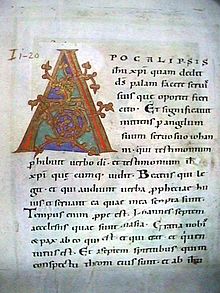 I 1-20
A POCALIPSIS
ihu xpi quam dedit
ds palam facere servis
suis que oportet fieri
cito. Et significavit
mittens p angelum
suum servo suo iohan
ni. qui testimonium
phibuit verbo di. et testimonium ih
xpi que cumq; vidit. Beatus qui le
git. et qui audiunt verba prophetie hui
us et servant ea que in ea scripta sunt.
Tempus enim ppe est. Johannes septem
ecclesiis que sunt in asia. Gratia vobis
et pax ab eo qui est et qui erat et qui ven
turus est. Et a septem spiritibus qui in
conspectu throni eius sunt. et ab ihu